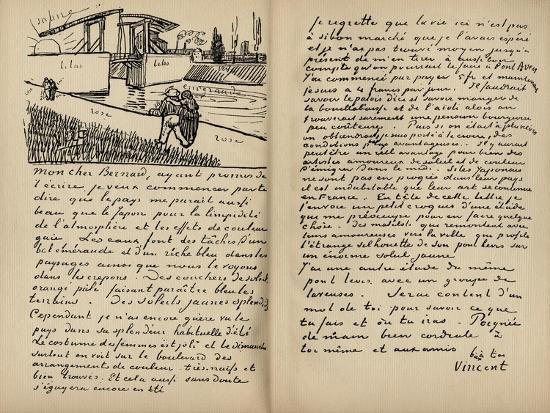 lilas lilas
emeraude
rose
rose
Mon cher Bernard, ayant promis de
t'écrire je veux commencer par te
dire que le pays me parait aussi
beau que le Japon pour la limpidité
de l'atmosphère et les effets de couleur
gaie. Les eaux font des taches d'un
bel émeraude et d'un riche bleu dans les
paysages ainsi que nous le voyons
dans les crepons. Des couchers de soleil
orangé pâle faisant paraitre bleus les
terrains. Des soleils jaunes splendides
Cependant je n'ai encore guère vu le
pays dans sa splendeur habituelle d'été
Le costume des femmes est joli et le dimanche
surtout on voit sur le boulevard des
arrangements de couleur très naifs et
bien trouvés. Et cela aussi sans doute
s'égayera encore en été
Je regrette que la vie ici n'est pas
à si bon marché que je l'avais espéré
et je n'ai pas trouvé moyen jusqu'à
présent de m'en tirer à aussi bon
compte qu'on pourrait le faire à Pont Aven
J'ai commencé par payer 5 fr et maintenant
je suis à 4 francs par jour. Il faudrait
savoir le patois d'ici et savoir manger de
la bouillabaisse et de l'aioli alors on
trouverait surement une pension bourgeoise
peu couteuse. Puis si on était à plusieurs
on obtiendrait je suis porté à le croire, des
conditions plus avantageuses. Il y aurait
peutêtre un réel avantage pour bien des
artistes amoureux de soleil et de couleur
d'émigrer dans le midi. Si les Japonais
ne sont pas en progrès dans leur pays
il est indubitable que leur art se continue
en France. En tête de cette lettre je
t'envoie un petit croquis d'une étude
qui me préoccupe pour en faire quelque
chose. Des matelots qui remontent avec
leurs amoureuses vers la ville qui profile
l'étrange silhouette de son pont levis sur
un énorme soleil jaune
J'ai une autre étude du même
pont levis avec un groupe de
laveuses. Serai content d'un
mot de toi pour savoir ce que
tu fais et où tu iras. Poignée
de main bien cordiale à
toi même et aux amis b. à toi
Vincent